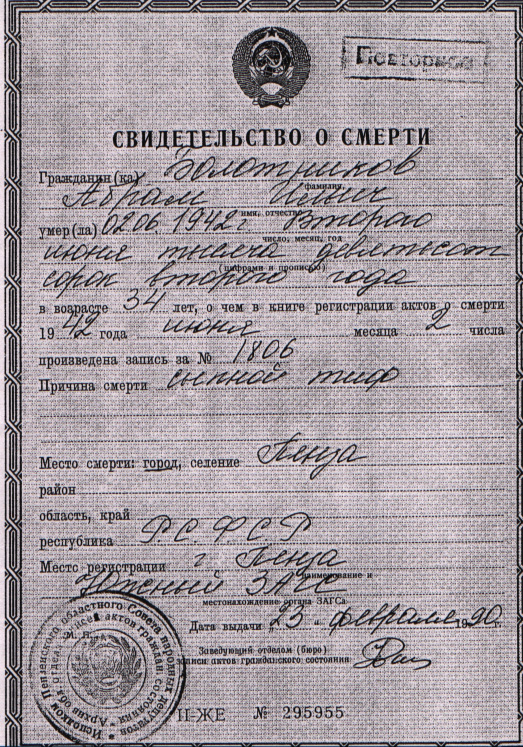 Повторное
СВИДЕТЕЛЬСТВО О СМЕРТИ
Гражданин (ка) Болотников
фамилия,
Абрам Ильич
имя, отчество
умер(ла) 02.06.1942 г. Второго
число, месяц, год
июня тысяча девятьсот
(цифрами и прописью)
сорок второго года
в возрасте 34 лет, о чем в книге регистрации актов о смерти
19 42 года июня месяца 2 числа
произведена запись за № 1806
Причина смерти сыпной тиф
Место смерти: город, селение Пенза
район
область, край
республика РСФСР
Место регистрации г. Пенза
наименование и
Южный ЗАГС
местонахождение органа ЗАГСа
Дата выдачи „23" февраля 1990 г.
Заведующий отделом (бюро)
записи актов гражданского состояния
II-ЖЕ № 295955